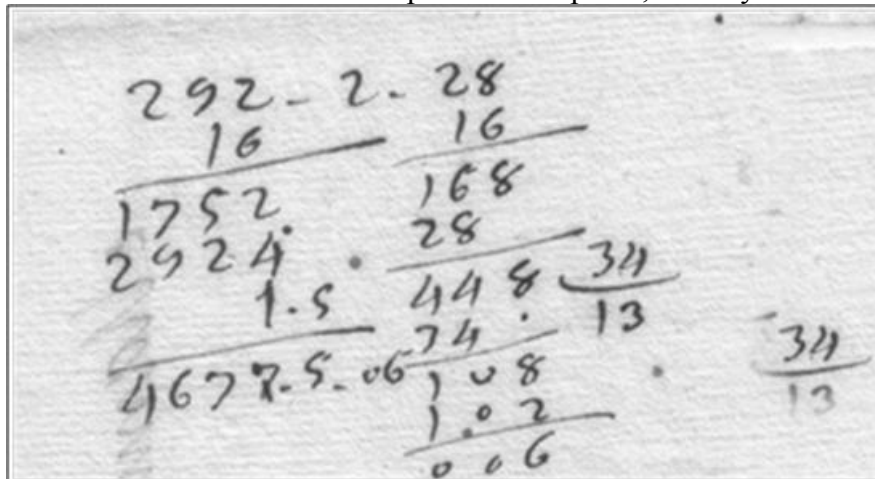 292-2-28
16 16
1752. 168
2924 28
1.5 448 34
13
4677.5-06 34. 34
13
108
1.02
006